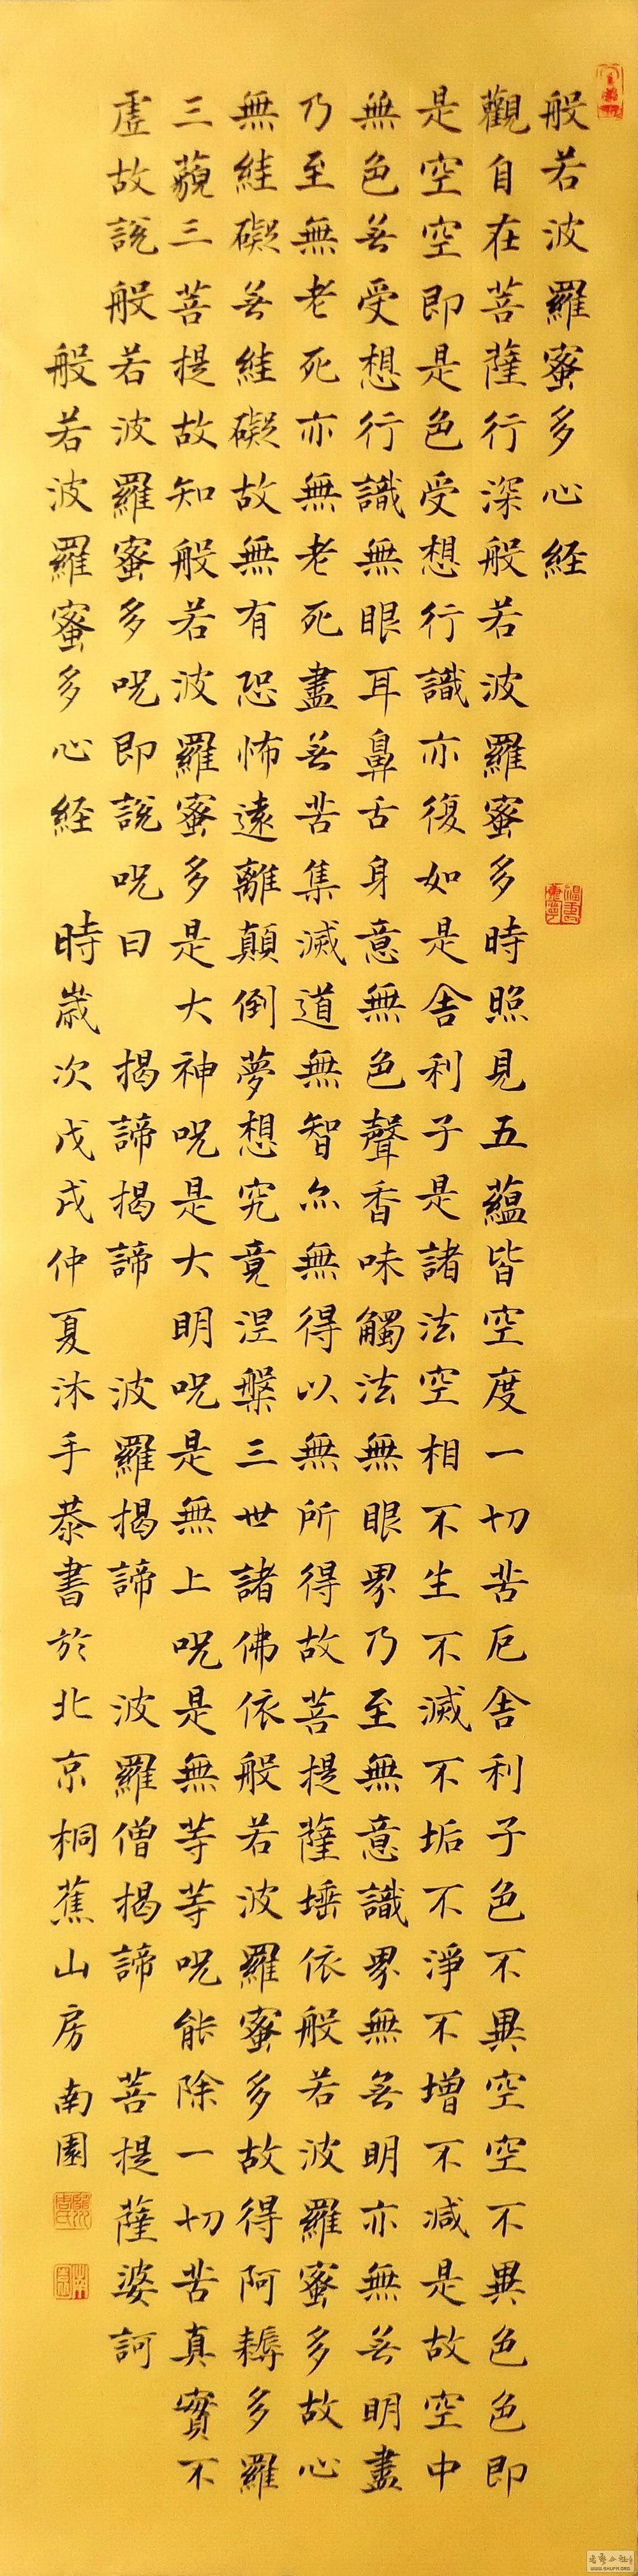 般若波羅蜜多心経
觀自在菩薩行深般若波羅蜜多時照見五蘊皆空度一切苦厄舎利子色不異空空不異色色即
是空空即是色受想行識亦復如是舎利子是諸法空相不生不滅不垢不淨不增不減是故空中
無色无受想行識無眼耳鼻舌身意無色聲香味觸法無眼界乃至無意識界無无明亦無无明盡
乃至無老死亦無老死盡无苦集滅道無智亦無得以無所得故菩提薩埵依般若波羅蜜多故心
無絓礙无絓礙故無有恐怖遠離顛倒夢想究竟涅槃三世諸佛依般若波羅蜜多故得阿耨多羅
三藐三菩提故知般若波羅蜜多是大神呪是大明呪是無上呪是無等等呪能除一切苦真實不
虛故說般若波羅蜜多呪即說呪曰 揭諦揭諦 波羅揭諦 波羅僧揭諦 菩提薩婆訶
般若波羅蜜多心経 時歲次戊戌仲夏沐手恭書於北京桐蕉山房南園
WWW.SHUFR.ORG